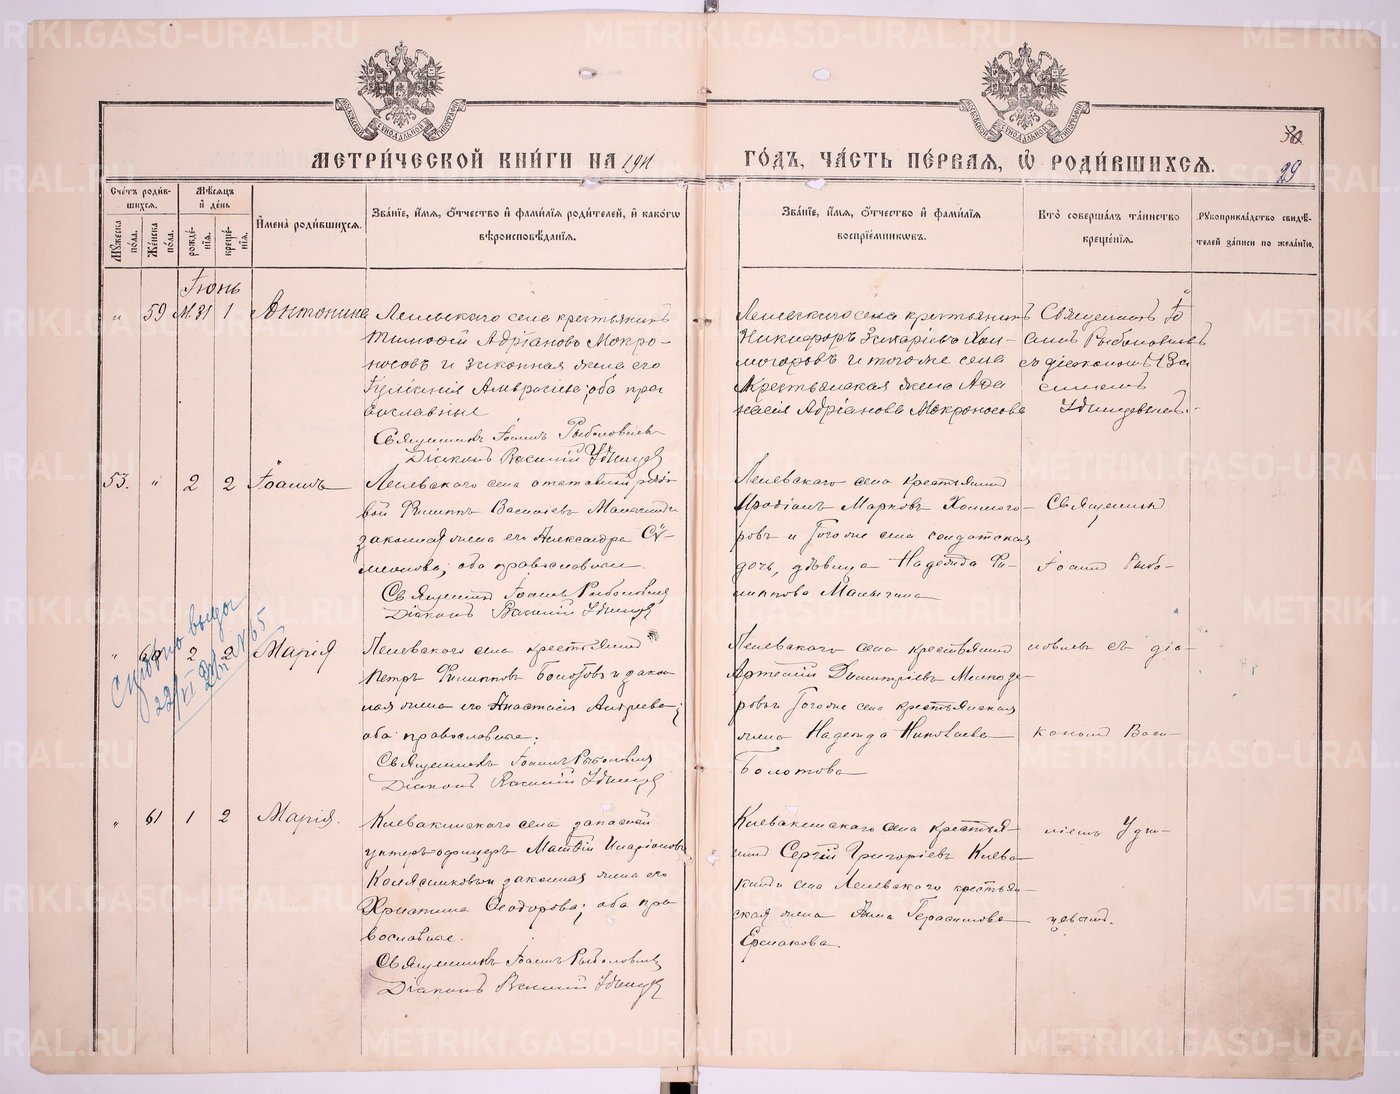 МЕТРИ́ЧЕСКОЙ КНИ́ГИ НА 1911
ГО́ДЪ, ЧА́СТЬ ПЕ́РВАЯ, Ѽ РОДИ́ВШИХСЯ.
30
29
Сче́тъ роди́вшихся.
Мꙋ́жеска по́ла.
Же́нска по́ла.
Мѣ́сяцъ и́ де́нь
рожде́нія.
креще́нія.
И́мена̀ роди́вшихся.
Зва́ніе, и́мя, ѻ́тчество и́ фами́лія роди́телей, и́ како́гѡ
вѣроисповѣ́данія.
Зва́ніе, и́мя, ѻ́тчество и́ фами́лія
воспріе́мникѡвъ.
Кто̀ соверша́лъ та́инство
креще́нія.
Рꙋкоприкла́дство свидѣ́телей за́писи по жела́нію.
Іюнь
„ 59 М.31 1 Антонина
крестьянинъ
Тимофій Адріановъ Мокро-
носовъ и законная жена его
Іуліанія Амвросіева; оба пра
вославные
Священникъ Іоаннъ Рыболовлевъ
Діаконъ Василій Удинцевъ
села крестьянинъ
Никифоръ Захаріевъ Хол-
могоровъ и того же села
Крестьянская жена Ада
Адріанова Мокроносова
Священникъ Іо
аннъ Рыболовлевъ
съ діакономъ Ва
силіемъ
Удинцевымъ.-
53. „ 2 2 Іоаннъ
села отставной рядо
вой Филиппъ Василіевъ
законная жена его Александра Сѵ-
меонова; оба православные.
Священникъ Іоаннъ Рыболовлевъ
Діаконъ Василій Удинцевъ
села крестьянинъ
Марковъ Холмого-
ровъ и того же села солдатская
дочь, дѣвица Надежда Фи-
липпова Малыгина
Священникъ
Іоаннъ Рыбо-
„ 60 2 2 Марія
села крестьянинъ
Петръ Филипповъ Болотовъ и закон
ная жена его Анастасія Андреева;
оба православные.
Священникъ Іоаннъ Рыболовлевъ
Діаконъ Василій Удинцевъ
села крестьянинъ
Артемій Димитріевъ
ровъ и того же села крестьянская
жена Надежда Николаева
Болотова
ловлевъ съ діа-
кономъ Васи-
выды
22/VI № 65
„ 61 1 2 Марія.
села запасный
унтеръ-офицеръ Матвій Иларіоновъ
Колясниковъ и законная жена его
Христина Ѳеодорова; оба пра
вославные.
Священникъ Іоаннъ Рыболовлевъ
Діаконъ Василій Удинцевъ
села крестья-
нинъ Сергій Григоріевъ
села крестьян-
ская жена Анна Герасимова
Ермакова.
ліемъ Удин-
цевымъ.
METRIKI.GASO-URAL.RU